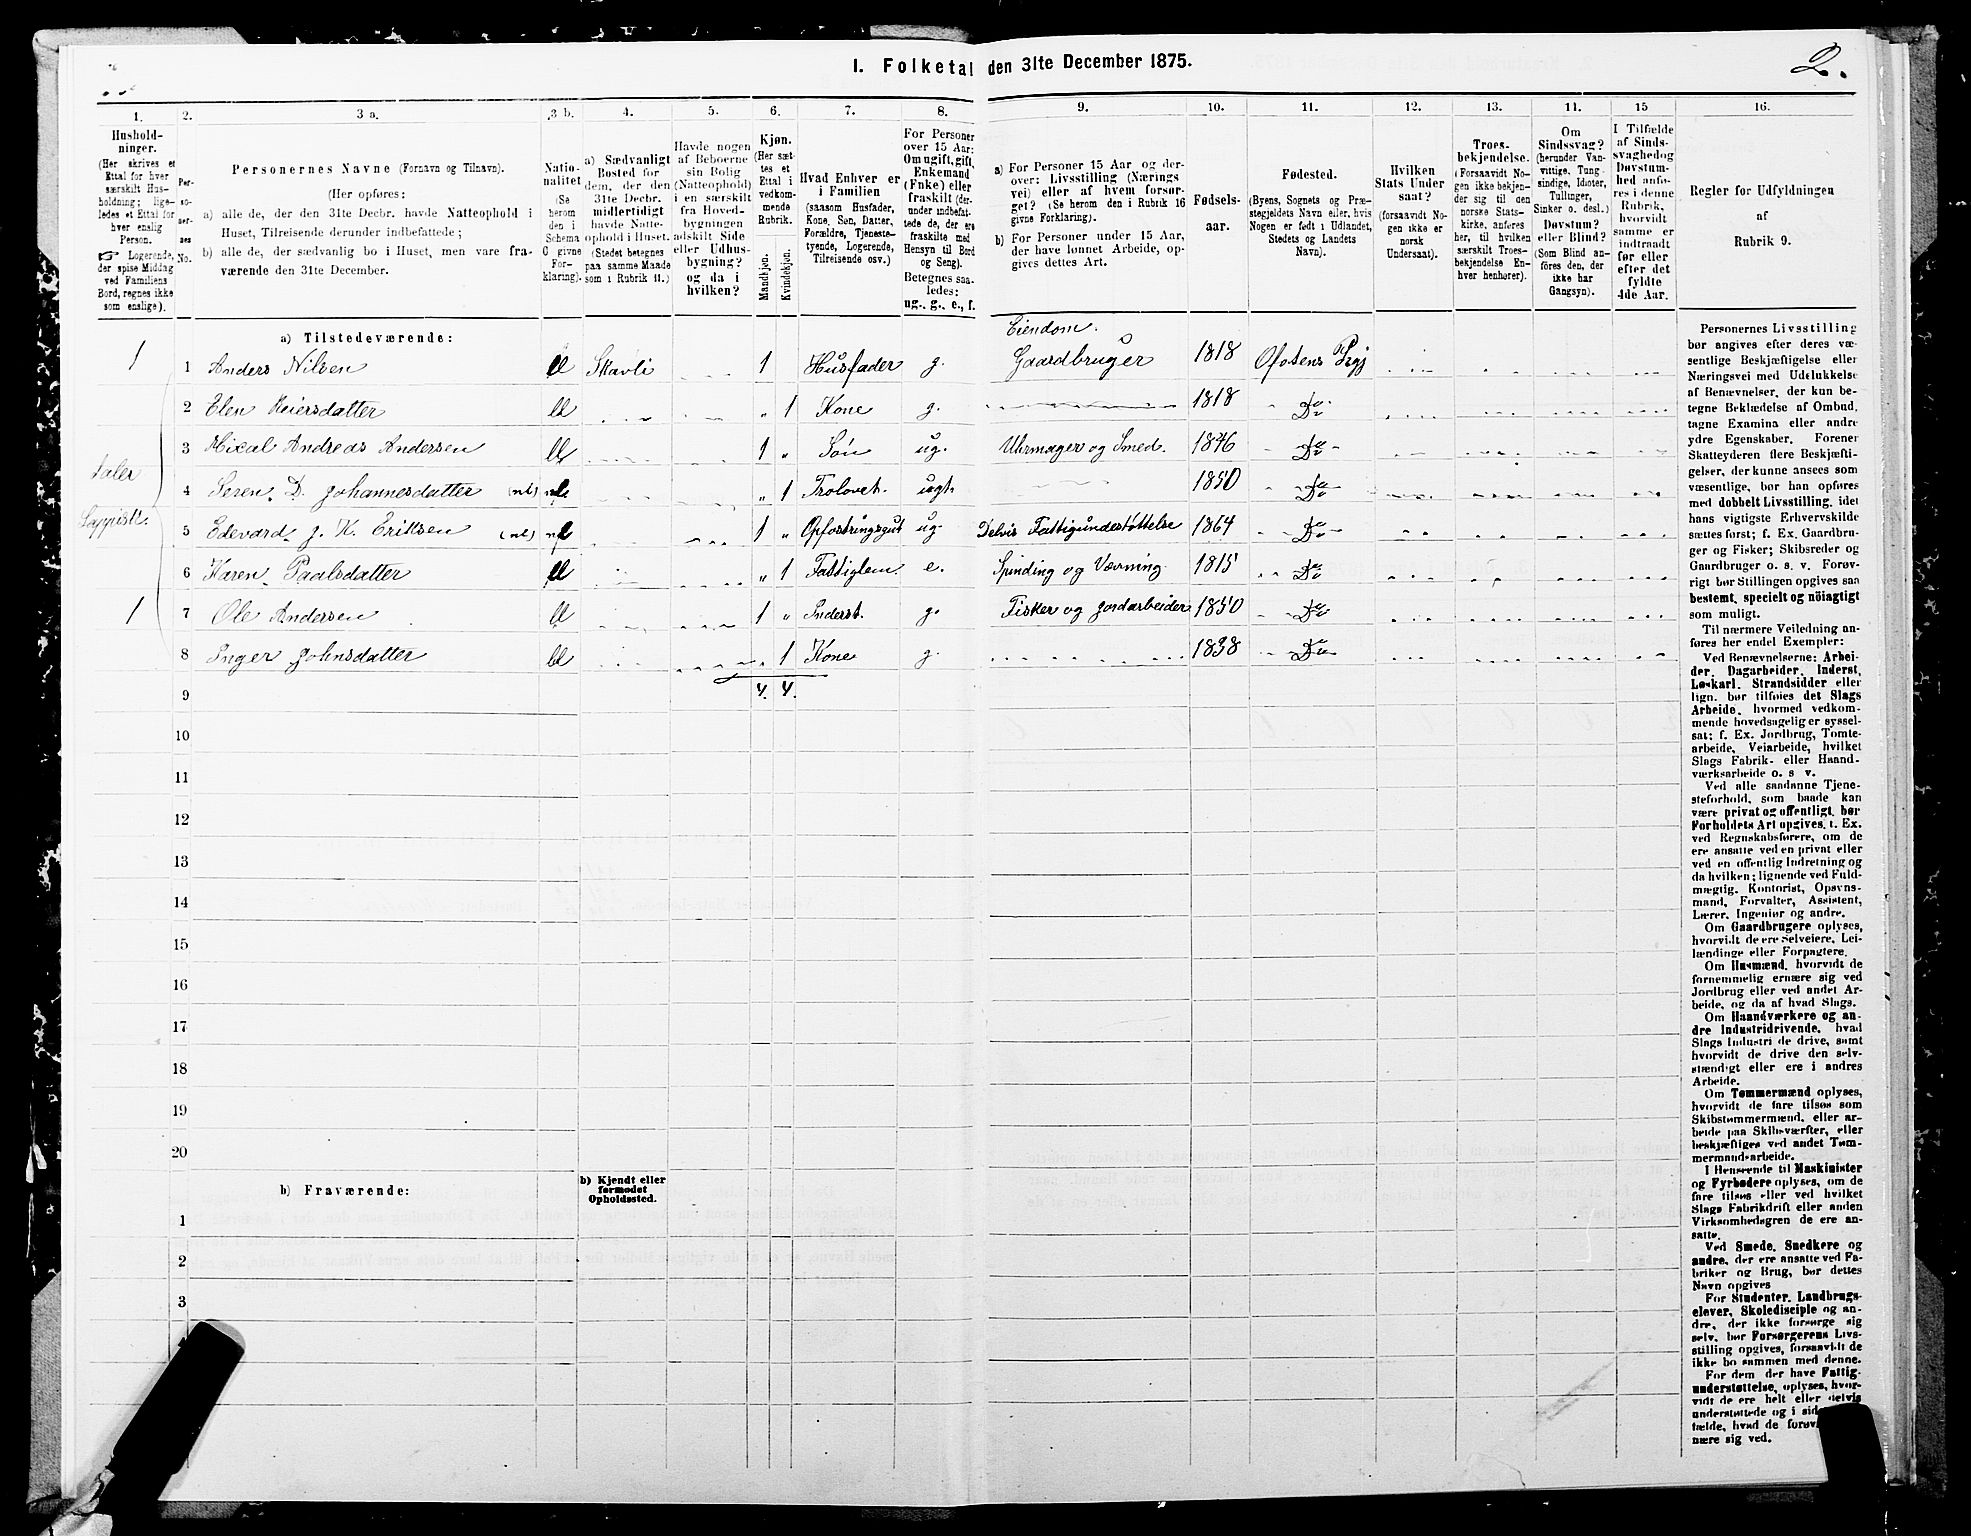 I. Folketal den 31te December 1875.
2.
1.
Hushold-
ninger.
(Her skrives et
Ettal for hver
særskilt Hus-
holdning; lige-
ledes et Ettal for
hver enslig
Person.
☞ Logerende,
der spise Middag
ved Familiens
Bord, regnes ikke
som enslige).
2.
Per-
so-
ner-
nes
No.
3 a.
Personernes Navne (Fornavn og Tilnavn).
(Her opføres:
a) alle de, der den 31te Decbr. havde Natteophold i
Huset, Tilreisende derunder indbefattede;
b) alle de, der sædvanlig bo i Huset, men vare fra-
værende den 31te December.
3 b.
Natio-
nalitet
(Se
herom
den i
Schema
C givne
For-
klaring).
4.
a) Sædvanligt
Bosted for
dem, der den
31te Decbr.
midlertidigt
havde Natte-
ophold i Huset.
(Stedet betegnes
paa samme Maade
som i Rubrik 11.)
5.
Havde nogen
af Beboerne
sin Bolig
(Natteophold)
i en særskilt
fra Hoved-
bygningen
adskilt Side
eller Udhus-
bygning?
og da i
hvilken?
6.
Kjøn.
(Her sæt-
tes et
Ettal i
vedkom-
mende
Rubrik.
Mandkjøn.
Kvindekjøn.
7.
Hvad Enhver er
i Familien
(saasom Husfader,
Kone, Søn, Datter,
Forældre, Tjeneste-
tyende, Logerende,
Tilreisende osv.)
8.
For Personer
over 15 Aar:
Om ugift, gift,
Enkemand
(Enke) eller
fraskilt (der-
under indbefat-
tede de, der ere
fraskilte med
Hensyn til Bord
og Seng).
Betegnes saa-
ledes:
ug., g., e., f.
9.
a) For Personer 15 Aar og der-
over: Livsstilling (Nærings
vei) eller af hvem forsør-
get? (Se herom den i Rubrik 16
givne Forklaring).
b) For Personer under 15 Aar,
der have lønnet Arbeide, op-
gives dettes Art.
10.
Fødsels-
aar.
11.
Fødested.
(Byens, Sognets og Præ-
stegjeldets Navn eller, hvis
Nogen er født i Udlandet,
Stedets og Landets
Navn).
12.
Hvilken
Stats Under
saat?
(forsaavidt No-
gen ikke er
norsk
Undersaat).
13.
Troes-
bekjendelse.
(Forsaavidt No-
gen ikke bekjen-
der sig til den
norske Stats-
kirke, anføres
her, til hvilken
særskilt Troes-
bekjendelse En-
hver henhører).
11.
Om
Sindssvag?
(herunder Van-
vittige, Tung
sindige, Idioter,
Tullinger,
Sinker o. desl.)
Døvstum?
eller Blind?
(Som Blind an-
føres den, der
ikke har
Gangsyn).
15
I Tilfælde
af Sinds-
svaghed og
Døvstum-
hed anfø-
res i denne
Rubrik,
hvorvidt
samme er
indtraadt
før eller
efter det
fyldte
4de Aar.
16.
Regler for Udfyldningen
af
Rubrik 9.
a) Tilstedeværende:
1 1 Anders Nilsen ll Skavli 1 Husfader g. Eiendom. Gaardbruger 1818 Ofotens Prgj
2 Elen Reiersdatter ll „ 1 Kone g. 1818 Do
3 Mical Andreas Andersen ll 1 „ Søn ug. Uhrmager og Smed. 1846 Do
taler
4 Seren. D. Johannesdatter (nl) „ 1 Trolovet. ugt. 1850 Do
Lappisk.
5 Edevard. J. K. Eriksen (nl) 1 „ Opfostringsgut ug. Delvis Fattigunderstøttelse 1864 Do
6 Karen. Paalsdatter ll „ 1 Fattiglem. e. Spinding og Vævning. 1815 Do
1 7 Ole Andersen ll 1 „ Inderst. g. Fisker og Jordarbeider 1850 Do
8 Inger Johnsdatter ll 1 Kone g. 1838 Do
9 4. 4.
10
11
12
13
14
15
16
17
18
19
20
b) Fraværende:
b) Kjendt eller
formodet
Opholdssted.
1
2
3
Personernes Livsstilling
bør angives efter deres væ-
sentlige Beskjæftigelse eller
Næringsvei med Udelukkelse
af Benævnelser, der kun be-
tegne Beklædelse af Ombud,
tagne Examina eller andre
ydre Egenskaber. Forener
Skatteyderen flere Beskjæfti-
gelser, der kunne ansees som
væsentlige, bør han opføres
med dobbelt Livsstilling, idet
hans vigtigste Erhvervskilde
sættes først; f. Ex. Gaardbru-
ger og Fisker; Skibsreder og
Gaardbruger o. s. v. Forøv-
rigt bør Stillingen opgives saa
bestemt, specielt og nöiagtigt
som muligt.
Til nærmere Veiledning an-
føres her endel Exempler:
Ved Benævnelserne: Arbei-
der, Dagarbeider, Inderst,
Løskarl, Strandsidder eller
lign. bør tilføies det Slags
Arbeide, hvormed vedkom-
mende hovedsagelig er syssel-
sat; f. Ex. Jordbrug, Tomte-
arbeide, Veiarbeide, hvilket
Slags Fabrik- eller Haand-
værksarbeide o. s v.
Ved alle saadanne Tjene-
steforhold, som baade kan
være privat og offentligt, bør
Forholdets Art opgives, t. Ex.
ved Regnskabsførere, om de
ere ansatte ved en privat eller
ved en offentlig Indretning og
da hvilken; lignende ved Fuld-
mægtig, Kontorist, Opsyns-
mand, Forvalter, Assistent,
Lærer, Ingeniør og andre.
Om Gaardbrugere oplyses,
hvorvidt de ere Selveiere, Lei-
lændinge eller Forpagtere.
Om Husmænd, hvorvidt de
fornemmelig ernære sig ved
Jordbrug eller ved andet Ar-
beide, og da af hvad Slags.
Om Haandværkere og an-
dre Industridrivende, hvad
Slags Industri de drive, samt
hvorvidt de drive den selv-
stændigt eller ere i andres
Arbeide.
Om Tømmermænd oplyses,
hvorvidt de fare tilsøs som
Skibstømmermænd, eller ar-
beide paa Skibsværfter, eller
beskjæftiges ved andet Tøm-
mermandsarbeide.
I Henseende til Maskinister
og Fyrbødere oplyses, om de
fare tilsøs eller ved hvilket
Slags Fabrikdrift eller anden
Virksomhedsgren de ere an-
satte.
Ved Smede, Snedkere og
andre, der ere ansatte ved Fa-
briker og Brug, bør dettes
Navn opgives
For Studenter, Landbrugs-
elever, Skoledisciple og an-
dre, der ikke forsørge sig
selv, bør Forsørgerens Livs-
stilling opgives, forsaavidt de
ikke bo sammen med denne.
For dem der have Fattig-
understøttelse, oplyses, hvor-
vidt de ere helt eller delvis
understøttede og i sid
fælde, hvad de forøv
nære sig ved.